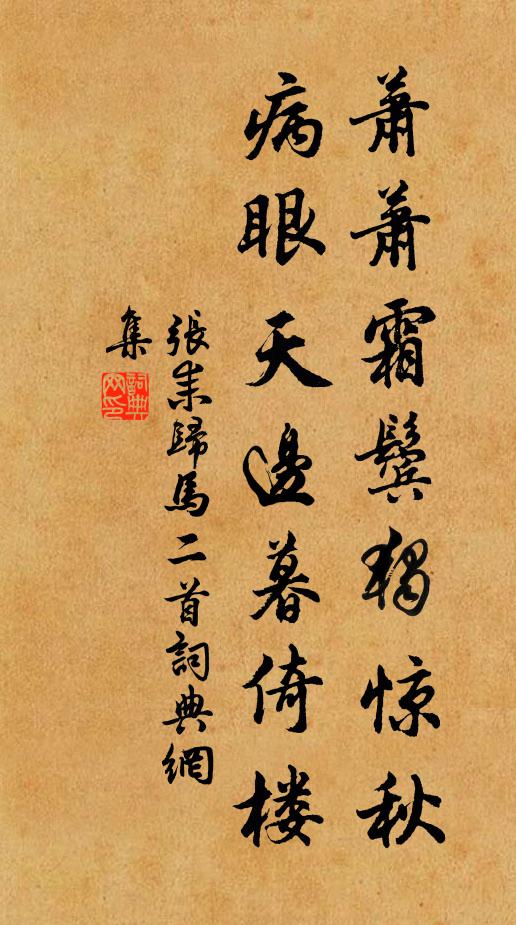 萧萧霜鬓独惊秋
病眼天邊暮倚楼
張耒歸馬二首詞典網
集
詞典
网印